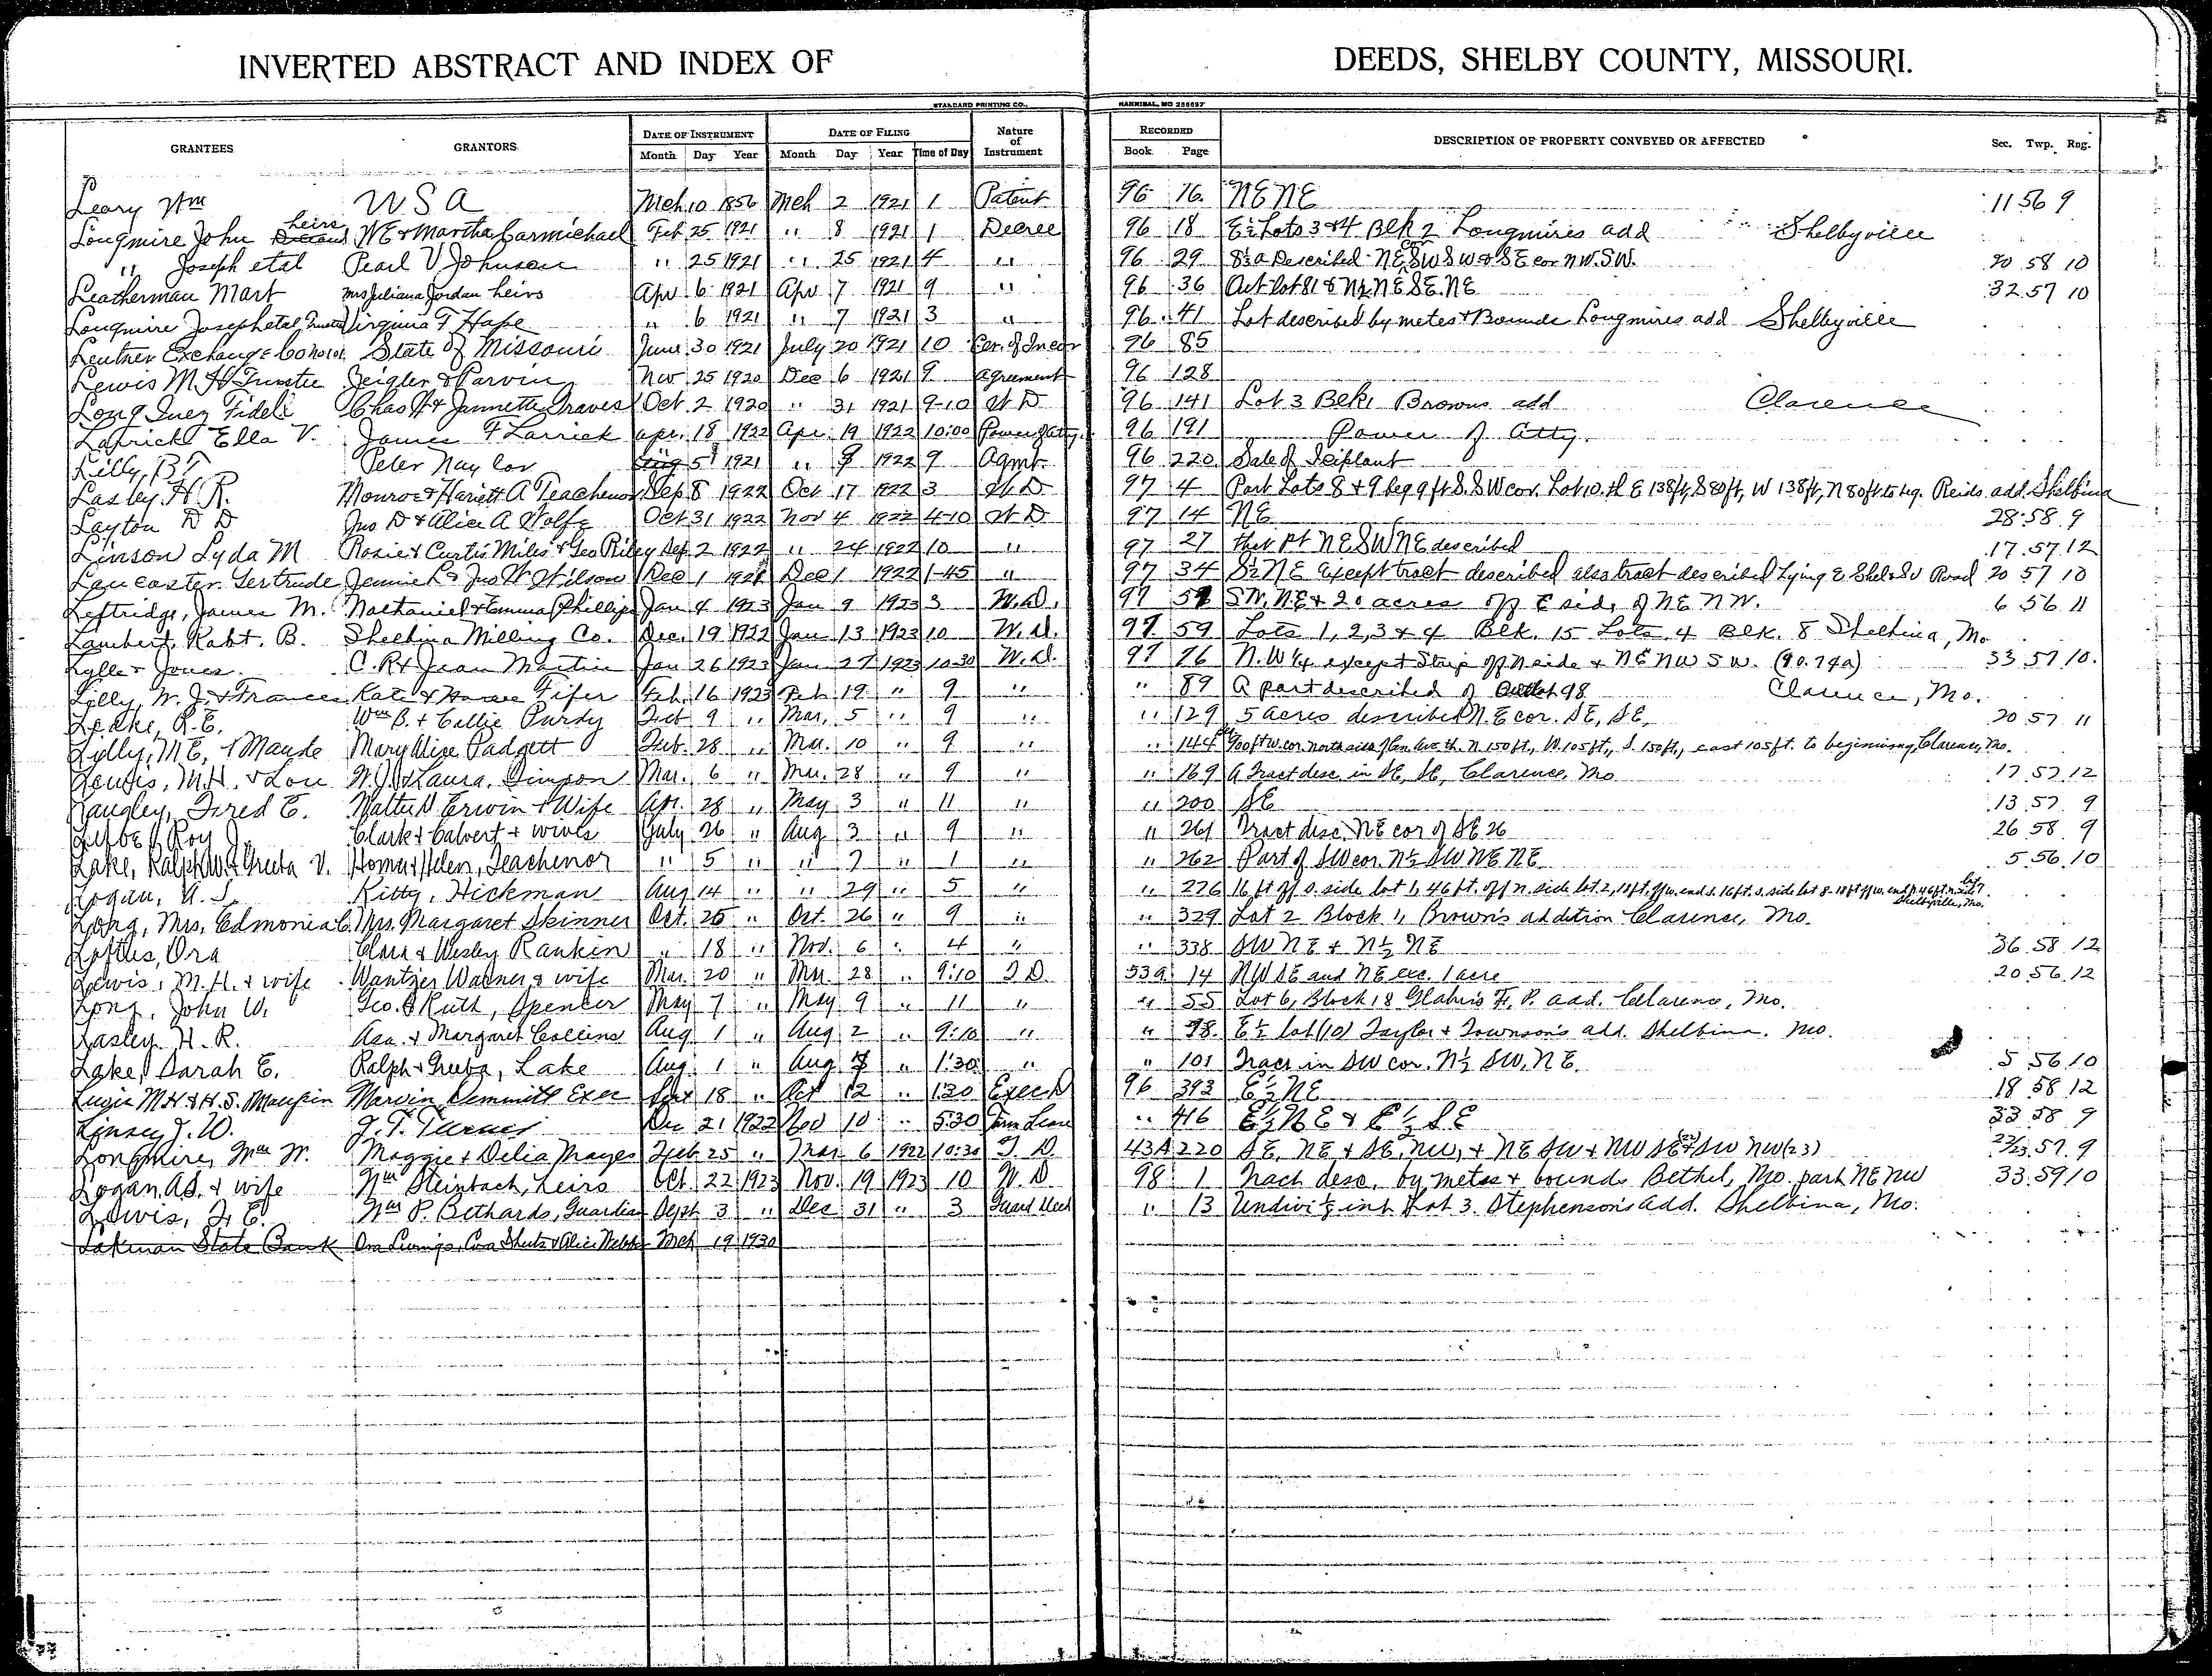 INVERTED ABSTRACT AND INDEX OF DEEDS, SHELBY COUNTY, MISSOURI.
STANDARD PRINTING CO., HANNIBAL, MO 256697
GRANTEES GRANTORS DATE OF INSTRUMENT DATE OF FILING Nature of Instrument RECORDED DESCRIPTION OF PROPERTY CONVEYED OR AFFECTED Sec. Twp. Rng.
Month Day Year Month Day Year Time of Day Book Page
Leary Wm U S A Mch 10 1856 Mch 2 1921 1 Patent 96 16 NE NE 11 56 9
Longmire John heirs W E & Martha Carmichael Feb 25 1921 " 8 1921 1 Decree 96 18 E½ Lots 3 & 4 Blk 2 Longmires add Shelbyville
" Joseph etal Pearl V Johnson " 25 1921 " 25 1921 4 " 96 29 described NE cor SW SW & SE cor NW. SW. 20 58 10
Leatherman Mart Mrs Juliana Jordan heirs Apr 6 1921 Apr 7 1921 9 " 96 36 Out lot 81 & N½ NE SE. NE 32 57 10
Longmire Joseph etal Trustees Virginia F " 6 1921 " 7 1921 3 " 96 41 Lot described by metes & Bounds Longmires add Shelbyville
Leutner Exchange State of Missouri June 30 1921 July 20 1921 10 Cer. of Incor 96 85
Lewis M H Trustee Zeigler & Parvin Nov 25 1920 Dec 6 1921 9 Agreement 96 128
Long Inez Fideli Chas H & Jannette Graves Oct 2 1920 " 31 1921 9-10 W D 96 141 Lot 3 Blk 1 Browns add Clarence
Larrick Ella V. James F Larrick Apr. 18 1922 Apr. 19 1922 10:00 Power of Atty. 96 191 Power of Atty.
Lilly, B T Peter Naylor 5 1921 " 9 1922 9 Agmt. 96 220 Sale of
Lasley H. R. Monroe & Hariett A Teachenor Sep 8 1922 Oct 17 1922 3 W D 97 4 Part Lots 8 & 9 beg 9 ft S. SW cor. Lot 10. th E 138 ft, S 80 ft, W 138 ft, N 80 ft to beg. Reids add. Shelbina
Layton D D Jno D & Alice A Wolfe Oct 31 1922 Nov 4 1922 4-10 W D 97 14 NE 28 58 9
Linson Lyda M Rosie & Curtis Miles & Geo Riley Sep 2 1922 " 24 1922 10 " 97 27 that pt NE SW NE described 17 57 12
Lancaster Gertrude Jennie R & Jno W Wilson Dec 1 1922 Dec 1 1922 1-45 " 97 34 S½ NE Except tract described also tract described Lying E Road 20 57 10
Leftridge, James M. Nathaniel & Emma Phillips Jan 4 1923 Jan 9 1923 3 W.D. 97 SW. NE & 20 acres off E side of NE NW. 6 56 11
Lambert, Robt. B. Shelbina Milling Co. Dec. 19 1922 Jan 13 1923 10 W.D. 97 59 Lots 1, 2, 3 & 4 Blk. 15 Lots 4 Blk. 8 Shelbina, Mo
Lyell & Jones C. R & Jean Martin Jan 26 1923 Jan 27 1923 10-30 W.D. 97 76 N.W ¼ except Strip off N side & NE NW SW. (90.74a) 33 57 10.
Lilly, W. J. & Frances Kate & Fifer Feb. 16 1923 Feb 19 " 9 " " 89 A part described of Outlot 98 Clarence, Mo.
Leake, R. E. Wm B. & Callie Purdy Feb 9 " Mar. 5 " 9 " " 129 5 acres described N.E cor. SE, SE, 20 57 11
Lylly, M E, & Maude Mary Alice Padgett Feb. 28 " Mar. 10 " 9 " " 144 900 ft W. cor north side of Ave. th. N 150 ft., W. 105 ft., S. 150 ft., east 105 ft. to beginning, Clarence, Mo.
Lewis, M.H. & Lou W.J. & Laura, Simpson Mar. 6 " Mar. 28 " 9 " " 169 A Tract desc. in SE, SE, Clarence, Mo 17 57 12
Langley, Fred E. Walter D Erwin & Wife Apr. 28 " May 3 " 11 " " 200 SE 13 57 9
Roy J. Clark & Calvert & wives July 26 " Aug 3 " 9 " " 261 Tract desc. NE cor of SE 26 26 58 9
Lake, Ralph W & Greeba V. Homer & Helen, Teachenor " 5 " " 7 " 1 " " 262 Part of SW cor. N½ SW NE NE 5 56 10
Logan, A. S. Kitty, Hickman Aug 14 " " 29 " 5 " " 276 16 ft off S. side lot 1, 46 ft. off N. side lot 2, 18 ft. off W. end S. 16 ft. S. side lot 8 - 18 ft off W. end N 46 ft. N. side lot 7. Shelbyville, Mo.
Long, Mrs. Edmonia C. Mrs. Margaret Skinner Oct. 25 " Oct. 26 " 9 " " 329 Lot 2 Block 1, Brown's addition Clarence, Mo.
Loftus, Ora Clara & Wesley Rankin " 18 " Nov. 6 " 4 " " 338 SW NE & N½ NE 36 58 12
Lewis, M.H. & wife Wantzer Warner & wife Mar. 20 " Mar. 28 " 9:10 T.D. 539 14 NW SE and NE exc. 1 acre 20 56 12
Long, John W. Geo. & Ruth, Spencer May 7 " May 9 " 11 " " 55 Lot 6, Block 18 add. Clarence, Mo.
Lasley H. R. Asa. & Margaret Collins Aug. 1 " Aug 2 " 9:10 " " 98 E½ lot (10) Taylor & Townson's add. Shelbina. Mo.
Lake, Sarah E. Ralph & Greeba, Lake Aug. 1 " Aug. 7 " 1:30 " " 101 Tract in SW cor. N½ SW, NE. 5 56 10
M H & H. S. Maupin Marvin Demmitt Exer Sept 18 " Oct 12 " 1:30 Exec D 96 393 E½ NE 18 58 12
Linsey J. W. J. T. Turner Dec 21 1922 Nov 10 " 530 Farm Lease " 416 E½ NE & E½ SE 33 58 9
Longmire, Wm W. Maggie & Delia Mayes Feb 25 " Mar. 6 1922 10:30 T. D. 434 220 SE, NE & SE, NW, & NE SW & NW SE (22) & SW NW (23) 22/23 57 9
Logan, A.S. & wife Wm Steinbach, heirs Oct. 22 1923 Nov. 19 1923 10 W. D. 98 1 Tract desc. by metes & bounds Bethel, Mo. part NE NW 33 59 10
Lewis, J. E. Wm P. Bethards, Guardian Sept 3 " Dec 31 " 3 Guard Deed " 13 Undivi ½ int Lot 3. Stephenson's add. Shelbina, Mo.
Lakenan State Bank Mch 19 1930